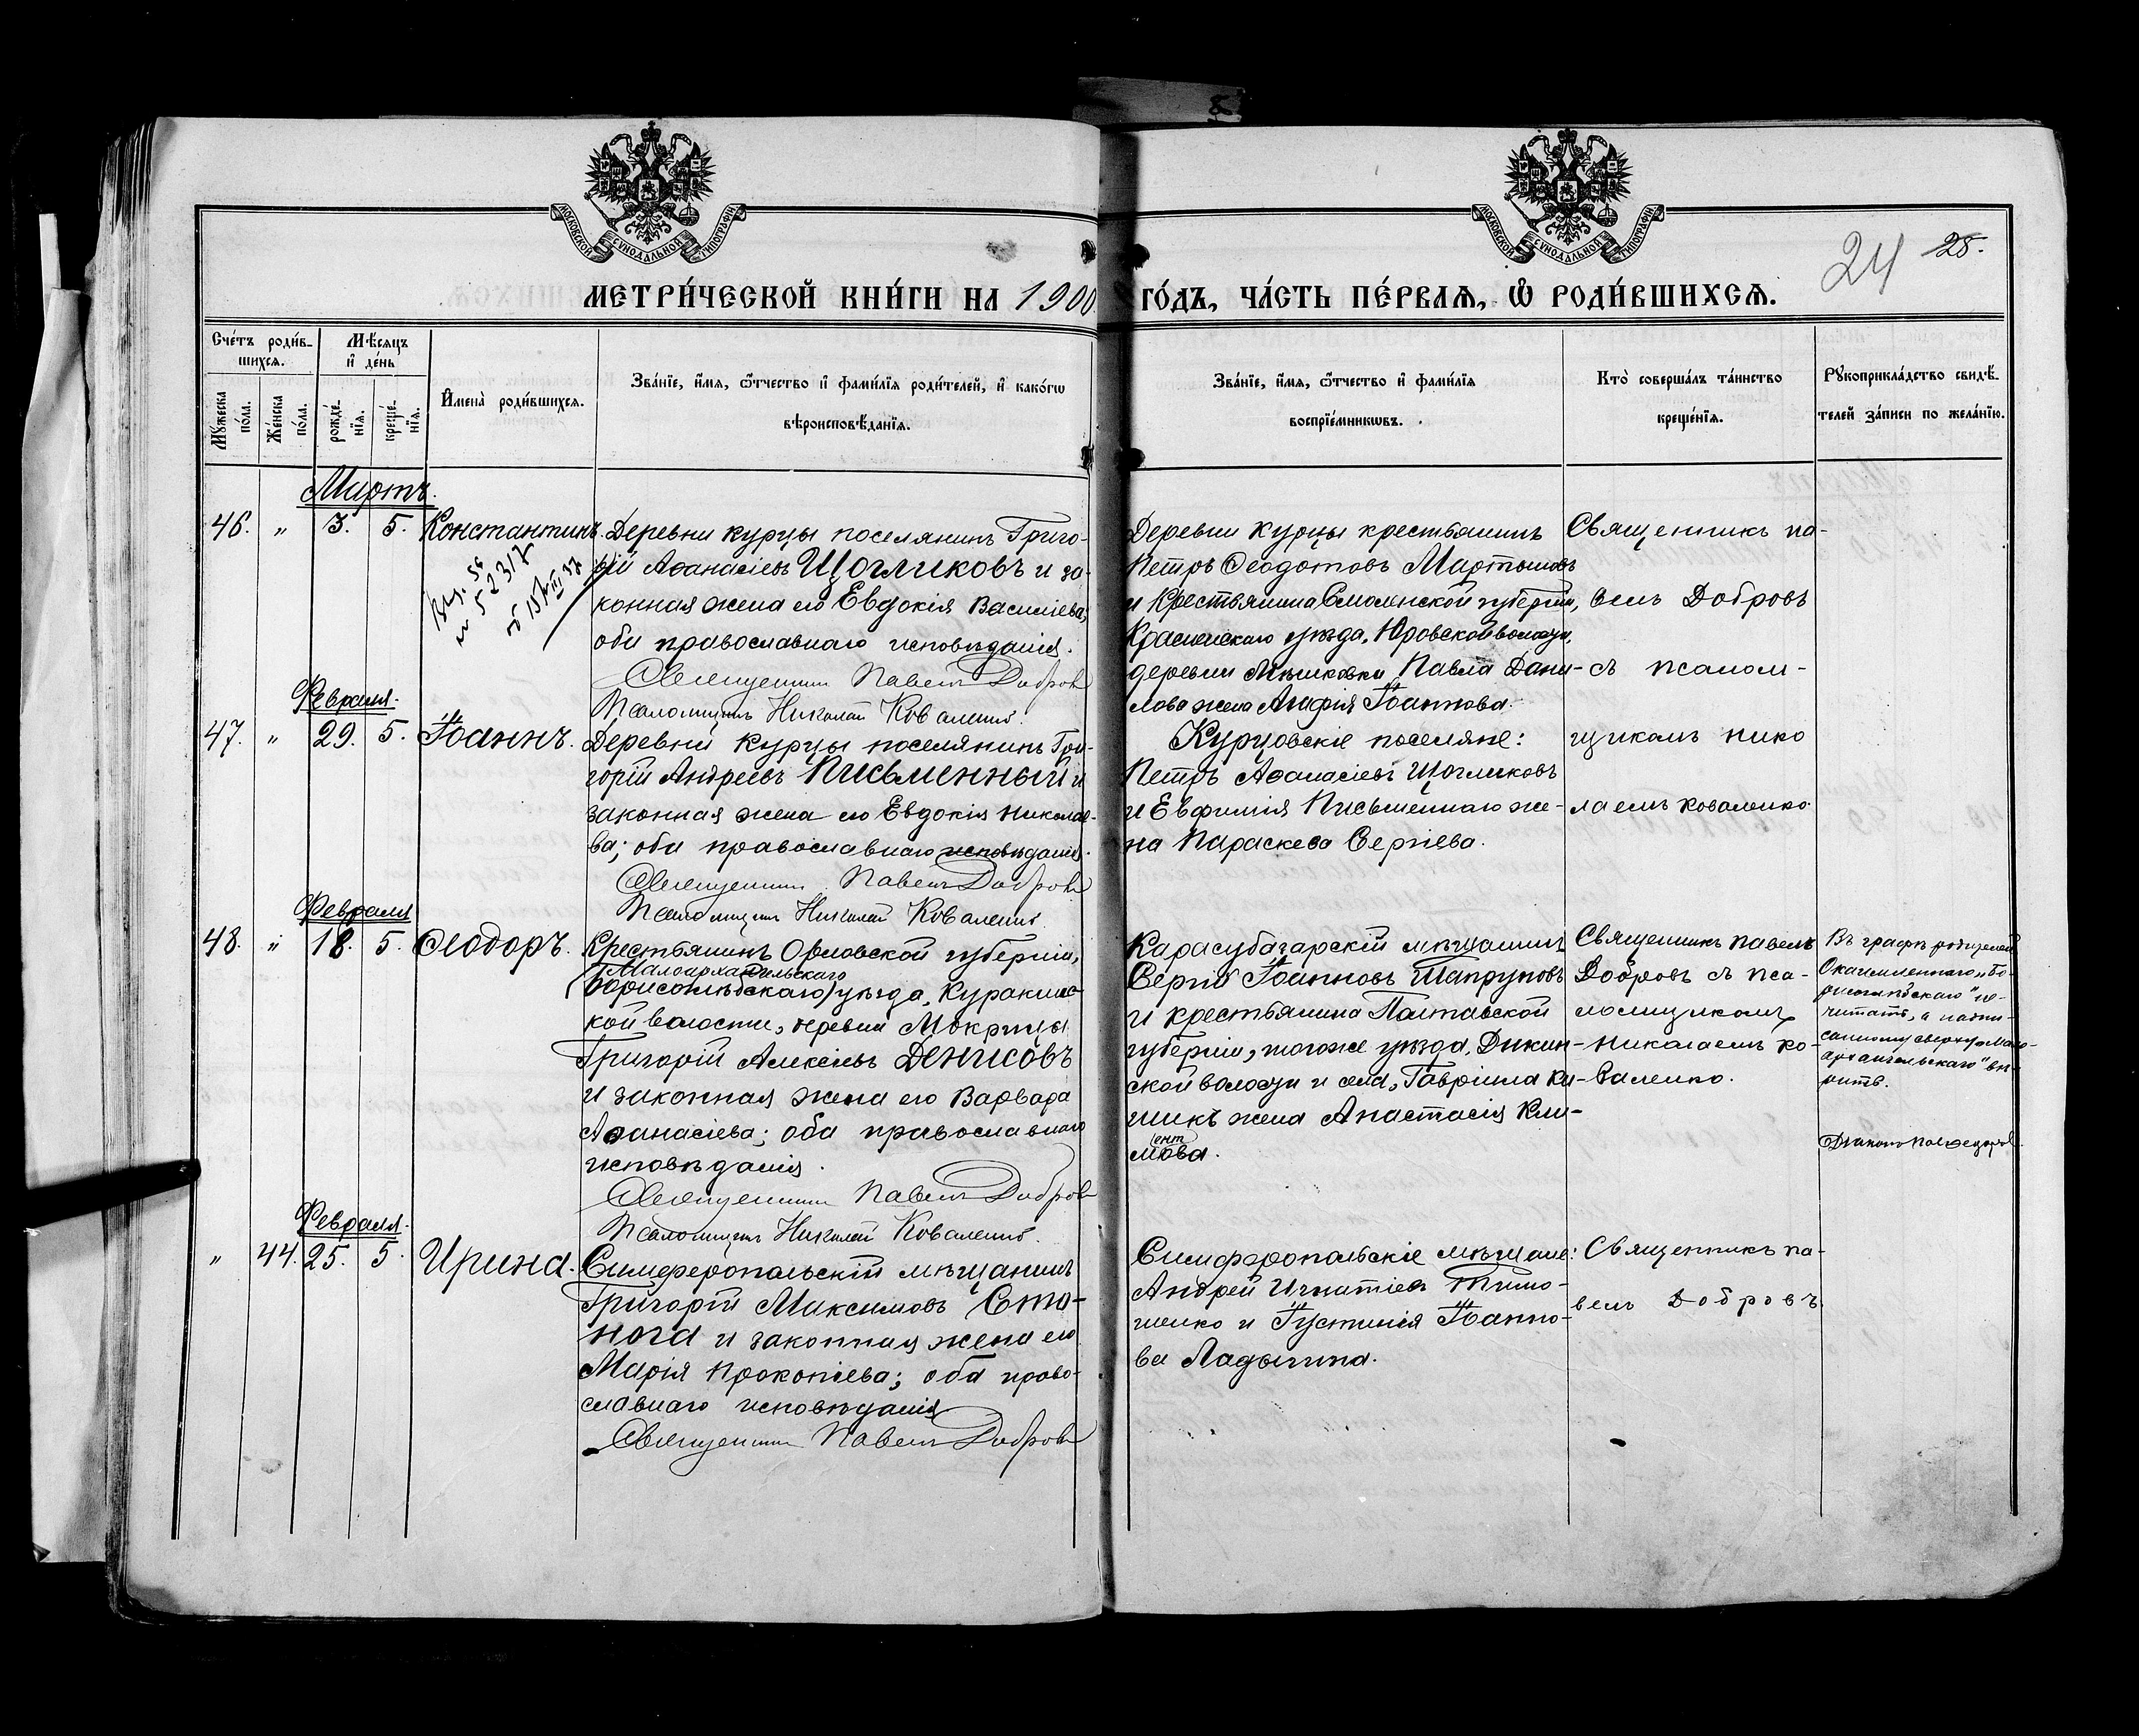 МОСКОВСКОЙ СУНОДАЛЬНОЙ ТИПОГРАФІИ
МОСКОВСКОЙ СУНОДАЛЬНОЙ ТИПОГРАФІИ
24 25.
МЕТРИ́ЧЕСКОЙ КНИ́ГИ НА 1900 ГО́ДЪ, ЧА́СТЬ ПЕ́РВАЯ, Ѽ РОДИ́ВШИХСЯ.
Сче́тъ роди́в-
шихся.
Му́жеска
по́ла.
Же́нска
по́ла.
Мѣ́сяцъ
и҆ де́нь
рожде́-
нїя.
креще́-
нїя.
И҆мена̀ роди́вшихся.
Зва́нїе, и҆́мя, ѿтчество и҆ фами́лїя роди́телей, и҆ како́гѡ
вѣроисповѣ́данїя.
Зва́нїе, и҆́мя, ѿтчество и҆ фами́лїя
воспрїе́мникѡвъ.
Кто̀ соверша́лъ та́инство
креще́нїя.
Рꙋкоприкла́дство свидѣ́-
телей за́писи по жела́нїю.
Мартъ.
46. " 3. 5. Константинъ.
Деревни Курцы поселянинъ Григо-
рій Аѳанасіевъ Щогликовъ и за-
конная жена его Евдокія Василіева,
оба православнаго исповѣданія.
Священникъ Павелъ Добровъ
Псаломщикъ Николай Коваленко.
Деревни Курцы крестьянинъ
Петръ Ѳеодотовъ Мартыновъ
и Крестьянина Смоленской губерніи,
Красненскаго уѣзда, Юровской волости,
деревни Мѣшковки, Павла Дани-
лова жена Агафія Іоаннова.
Священникъ Па-
велъ Добровъ
съ псалом-
Февраля.
47. " 29. 5. Іоаннъ.
Деревни Курцы поселянинъ Гри-
горій Андреевъ Письменный и
законная жена его Евдокія Николае-
ва; оба православнаго исповѣданія.
Священникъ Павелъ Добровъ
Псаломщикъ Николай Коваленко
Курцовскіе поселяне:
Петръ Аѳанасіевъ Щогликовъ
и Евфимія Письменнаго же-
на Параскева Сергіева.
щикомъ Нико
лаемъ Коваленко
Февраля
48. " 18. 5. Ѳеодоръ.
Крестьянинъ Орловской губерніи,
Малоархангельскаго
(Борисоглѣбскаго) уѣзда, Куракинс-
кой волости, деревни Мокрицы
Григорій Алексіевъ Денисовъ
и законная жена его Варвара
Аѳанасіева; оба православнаго
исповѣданія.
Священникъ Павелъ Добровъ
Псаломщикъ Николай Коваленко.
Карасубазарскій мѣщанинъ
Сергій Іоанновъ Шапруновъ
и крестьянина Полтавской
губерніи, тогоже уѣзда, Дикан-
ской волости и села, Гавріила Ки-
шикъ жена Анастасія Кли-
ент
мова.
Священникъ Павелъ
Добровъ съ пса-
ломщикомъ
Николаемъ Ко-
валенко.
Въ графѣ родителей
"Бо-
рисоглѣбскаго" не
читать, а надпи-
санному сверху "Мало-
архангельскаго" вѣ-
рить.
Февраля.
" 44. 25. 5. Ирина.
Симферопольскій мѣщанинъ
Григорій Максимовъ Сто-
нога и законная жена его
Марія Прокопіева; оба право-
славнаго исповѣданія
Священникъ Павелъ Добровъ
Симферопольскіе мѣщане:
Андрей Игнатіевъ Тимо-
шенко и Іустинія Іоанно-
ва Ладыгина.
Священникъ Па-
велъ Добровъ.